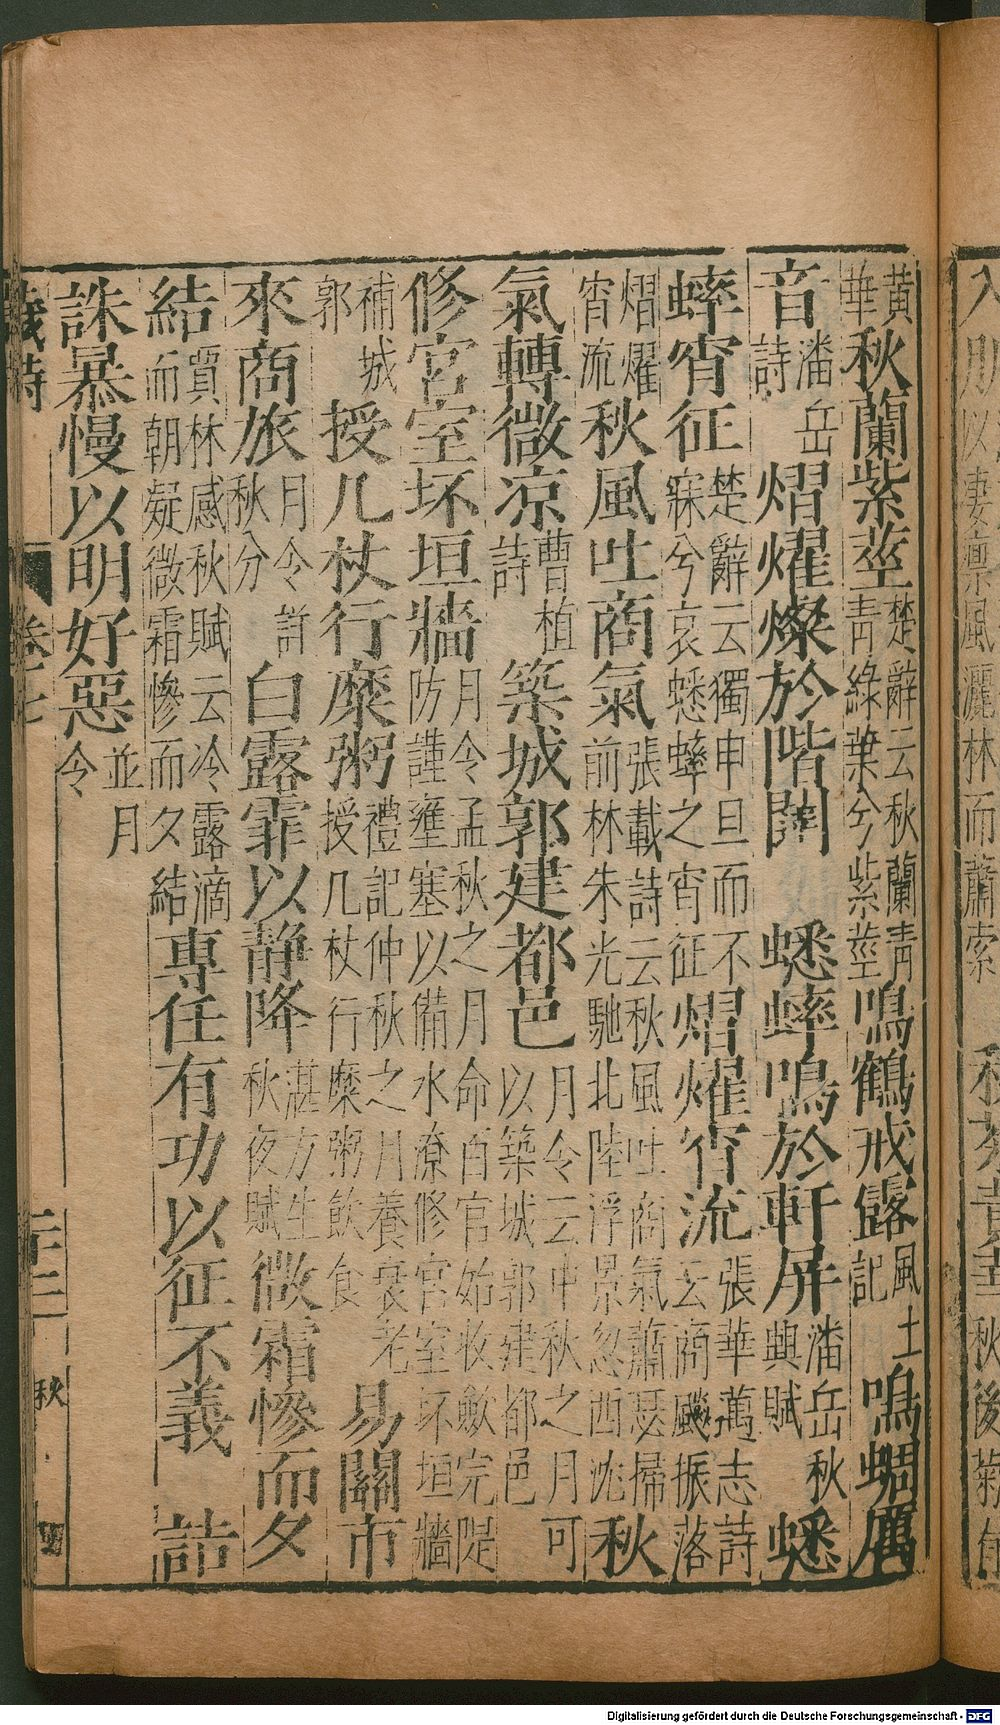 黃華秋蘭紫莖楚辭云秋蘭青青綠葉兮紫莖鳴鶴戒露風土記鳴蜩厲
音潘岳詩熠燿燦於階闥 蟋蟀鳴於軒屏潘岳秋興賦蟋
蟀宵征楚辭云獨申旦而不寐兮哀蟋蟀之宵征熠燿宵流張華萬志詩云商飈振落
熠燿宵流秋風吐商氣張載詩云秋風吐商氣蕭瑟掃前林朱光馳北陸浮景忽西沈秋
氣轉微凉曹植詩築城郭建都邑月令云中秋之月可以築城郭建都邑
修宮室坏垣牆月令孟秋之月命百官始收斂完隄防謹壅塞以備水潦修宮室坏垣牆
補城郭授几杖行糜粥禮記仲秋之月養衰老授几杖行糜粥飲食 易關市
來商旅月令註秋分白露霏以靜降湛方生秋夜賦微霜慘而夕
結賈林感秋賦云冷露滴而朝凝微霜慘而夕結專任有功以征不義 詰
誅暴慢以明好惡並月令
歲時 卷七 二十三 秋
Digitalisierung gefördert durch die Deutsche Forschungsgemeinschaft - DFG